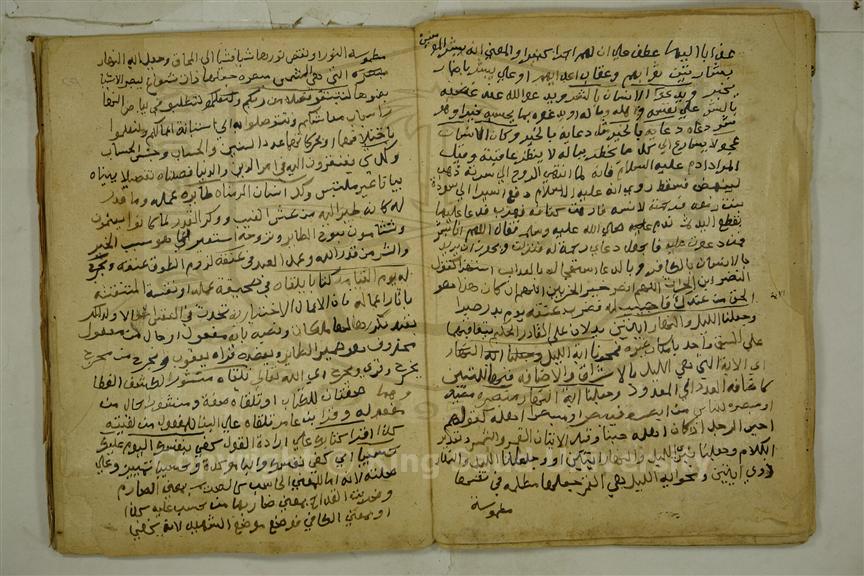 عذابا اليما عطف على ان لهم اجرا كبيرا والمعنى انه يبشر المؤمنين
ببشارتين ثوابهم وعقاب اعدائهم او على يبشر باضمار
يخبر ويدع الانسان بالشر ويدعو الله عند غضبه
بالشر على نفسه واهله وماله او يدعوه بما يحسبه خيرا وهو
شر دعاءه بالخير مثل دعائه بالخير وكان الانسان
عجولا يسارع الى كل ما يخطر بباله لا ينظر عاقبته وقيل
المراد ادم عليه السلام فانه لما انتهى الروح الى سرته ذهب
لينهض فسقط روي انه عليه السلام دفع اسيرا الى سودة
بنت زمعة فرحمته لانينه فارخت كتافه فهرب فدعا عليها
بقطع اليد ثم ندم عليه صلى الله عليه وسلم فقال اللهم انما انا بشر
فمن دعوت عليه فاجعل دعائي رحمة له فنزلت ويجوز ان يريد
بالانسان الكافر وبالدعاء استعجاله بالعذاب استهزاء كقول
النضر ابن الحارث اللهم انصر خير الحزبين اللهم ان كان هذا هو
الحق من عندك فاجيب له فضرب عنقه يوم بدر صبرا
وجعلنا الليل والنهار ايتين يدلان على القادر الحكيم بتعاقبهما
على نسق واحد بامكان غيره فمحونا اية الليل وجعلنا اية النهار
اي الاية التي هي الليل بالاشراق والاضافة فيهما للتبيين
كاضافة العدد الى المعدود وجعلنا اية النهار مبصرة مضيئة
او مبصرة للناس من ابصره فبصر او مبصرا اهله كقولهم
اجبن الرجل اذا كان اهله جبناء وقيل الايتان القمر والشمس وتقدير
الكلام وجعلنا نيري الليل والنهار ايتين او وجعلنا الليل والنهار
ذوي ايتين ومحو اية الليل التي هي القمر جعلها مظلمة في نفسها
مطموسة
مطموسة النور او نقص نورها شيئا فشيئا الى المحاق وجعل اية النهار
مبصرة التي هي الشمس مبصرة جعلها ذات شعاع تبصر الاشياء
بضوءها لتبتغوا فضلا من ربكم لتطلبوا في بياض النهار
اسباب معاشكم وتتوصلوا به الى استبانة اعمالكم ولتعلموا
باختلافهما او بحركاتهما عدد السنين والحساب وجنس الحساب
وكل شيء تفتقرون اليه في امر الدين والدنيا فصلناه تفصيلا بيناه
بيانا غير ملتبس وكل انسان الزمناه طائره عمله وما قدر
له كانه طير اليه من عش الغيب ووكر القدر لما كانوا يتيمنون
ويتشاءمون بسنوح الطائر وبروحه استعير لما هو سبب الخير
والشر من قدر الله وعمل العبد في عنقه لزوم الطوق عنقه ونخرج
له يوم القيامة كتابا يلقاه هي صحيفة عمله او نفسه المنتقشة
باثار اعماله فان الاعمال الاختيارية تحدث في النفس احوالا ولذلك
يفيد تكريرها لها ملكات ونصبه بانه مفعول او حال من مفعول
محذوف وهو ضمير الطائر ويعضده قراءة يعقوب ويخرج من يخرج
يخرج وقرئ ويخرج اي الله تعالى يلقاه منشورا لكشف الغطاء
وهما صفتان للكتاب او يلقاه صفة ومنشورا حال من
مفعوله وقرا ابن عامر يلقاه على البناء للمفعول من لقيته
كذا اقرا كتابك على ارادة القول كفى بنفسك اليوم عليك
حسيبا اي كفى نفسك والباء مزيدة وحسيبا تمييز وعلى
صلته لانه اما بمعنى الحاسب كالصريم بمعنى الصارم
وضريب القداح بمعنى ضاربها من حسب عليه كذا
او بمعنى الكافي فوضع موضع الشهيد لانه يكفي